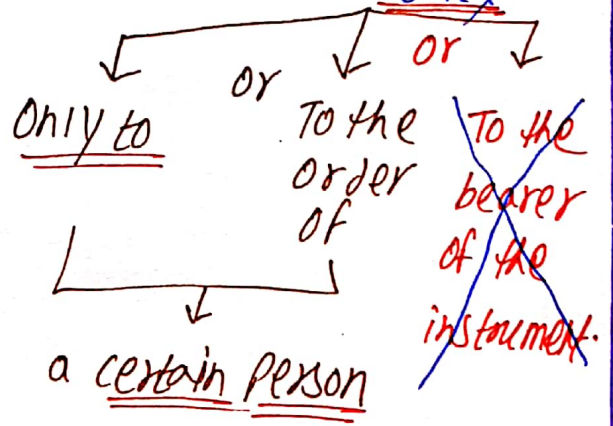 or
or
Only to
To the
order
of
To the
bearer
of the
instrument.
a certain person